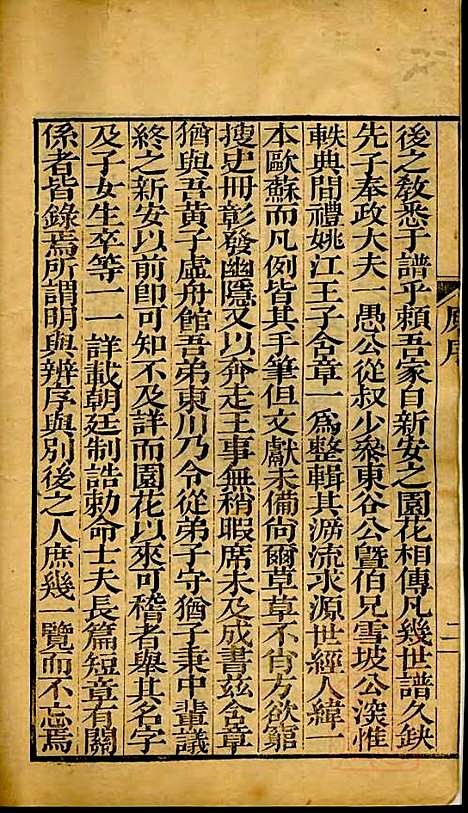 原序
二
後之教悉于譜乎頼吾家自新安之園花相傳凡幾世譜久缺
先子奉政大夫一愚公從叔少叅東谷公曁伯兄雪坡公深惟
軼典問禮姚江王子含章一爲整輯其㳺流求源世經人緯一
本歐蘇而凡例皆其手筆但文獻未備尚爾草草不肖方欲窮
搜史冊彰發幽隱又以奔走王事無稍暇席未及成書兹含章
猶與吾黄子虛舟館吾弟東川乃令從弟子守猶子秉中輩議
終之新安以前即可知不及詳而園花以來可稽者舉其名字
及子女生卒等一一詳載朝廷制誥勅命士夫長篇短章有關
係者皆錄焉所謂明與辨序與別後之人庶幾一覽而不忘焉